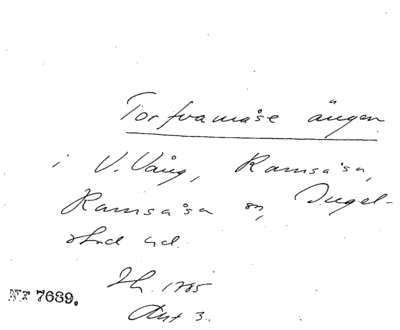 Torfvamåse ängen
i V. Vång, Ramsåsa,
Ramsåsa sn, Ingel-
stad hd.
Sk. 1785
Akt 3.
NF 7689.